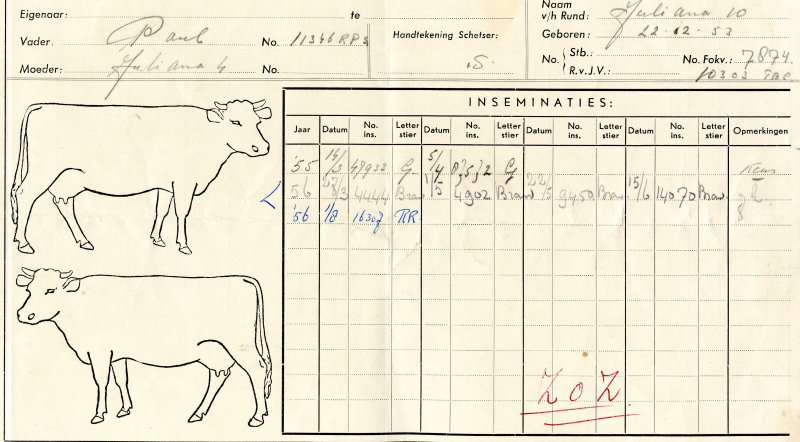 Eigenaar: te
Vader: Paul No. 11346 RPS
Moeder: Juliana 4 No.
Handtekening Schetser:
S.
Naam v/h Rund: Juliana 10
Geboren: 22-12-53
No. Stb.: No. Fokv.: 7874
R.v.J.V.: 10303
INSEMINATIES:
Jaar Datum No. ins. Letter stier Datum No. ins. Letter stier Datum No. ins. Letter stier Datum No. ins. Letter stier Opmerkingen
'55 14/3 47933 G. 5/4 G
56 28/3 4444 Braw 1/5 4902 Braw 22/5 9450 Braw 15/6 14070 Braw
'56 1/8 16307 RR
ZOZ.